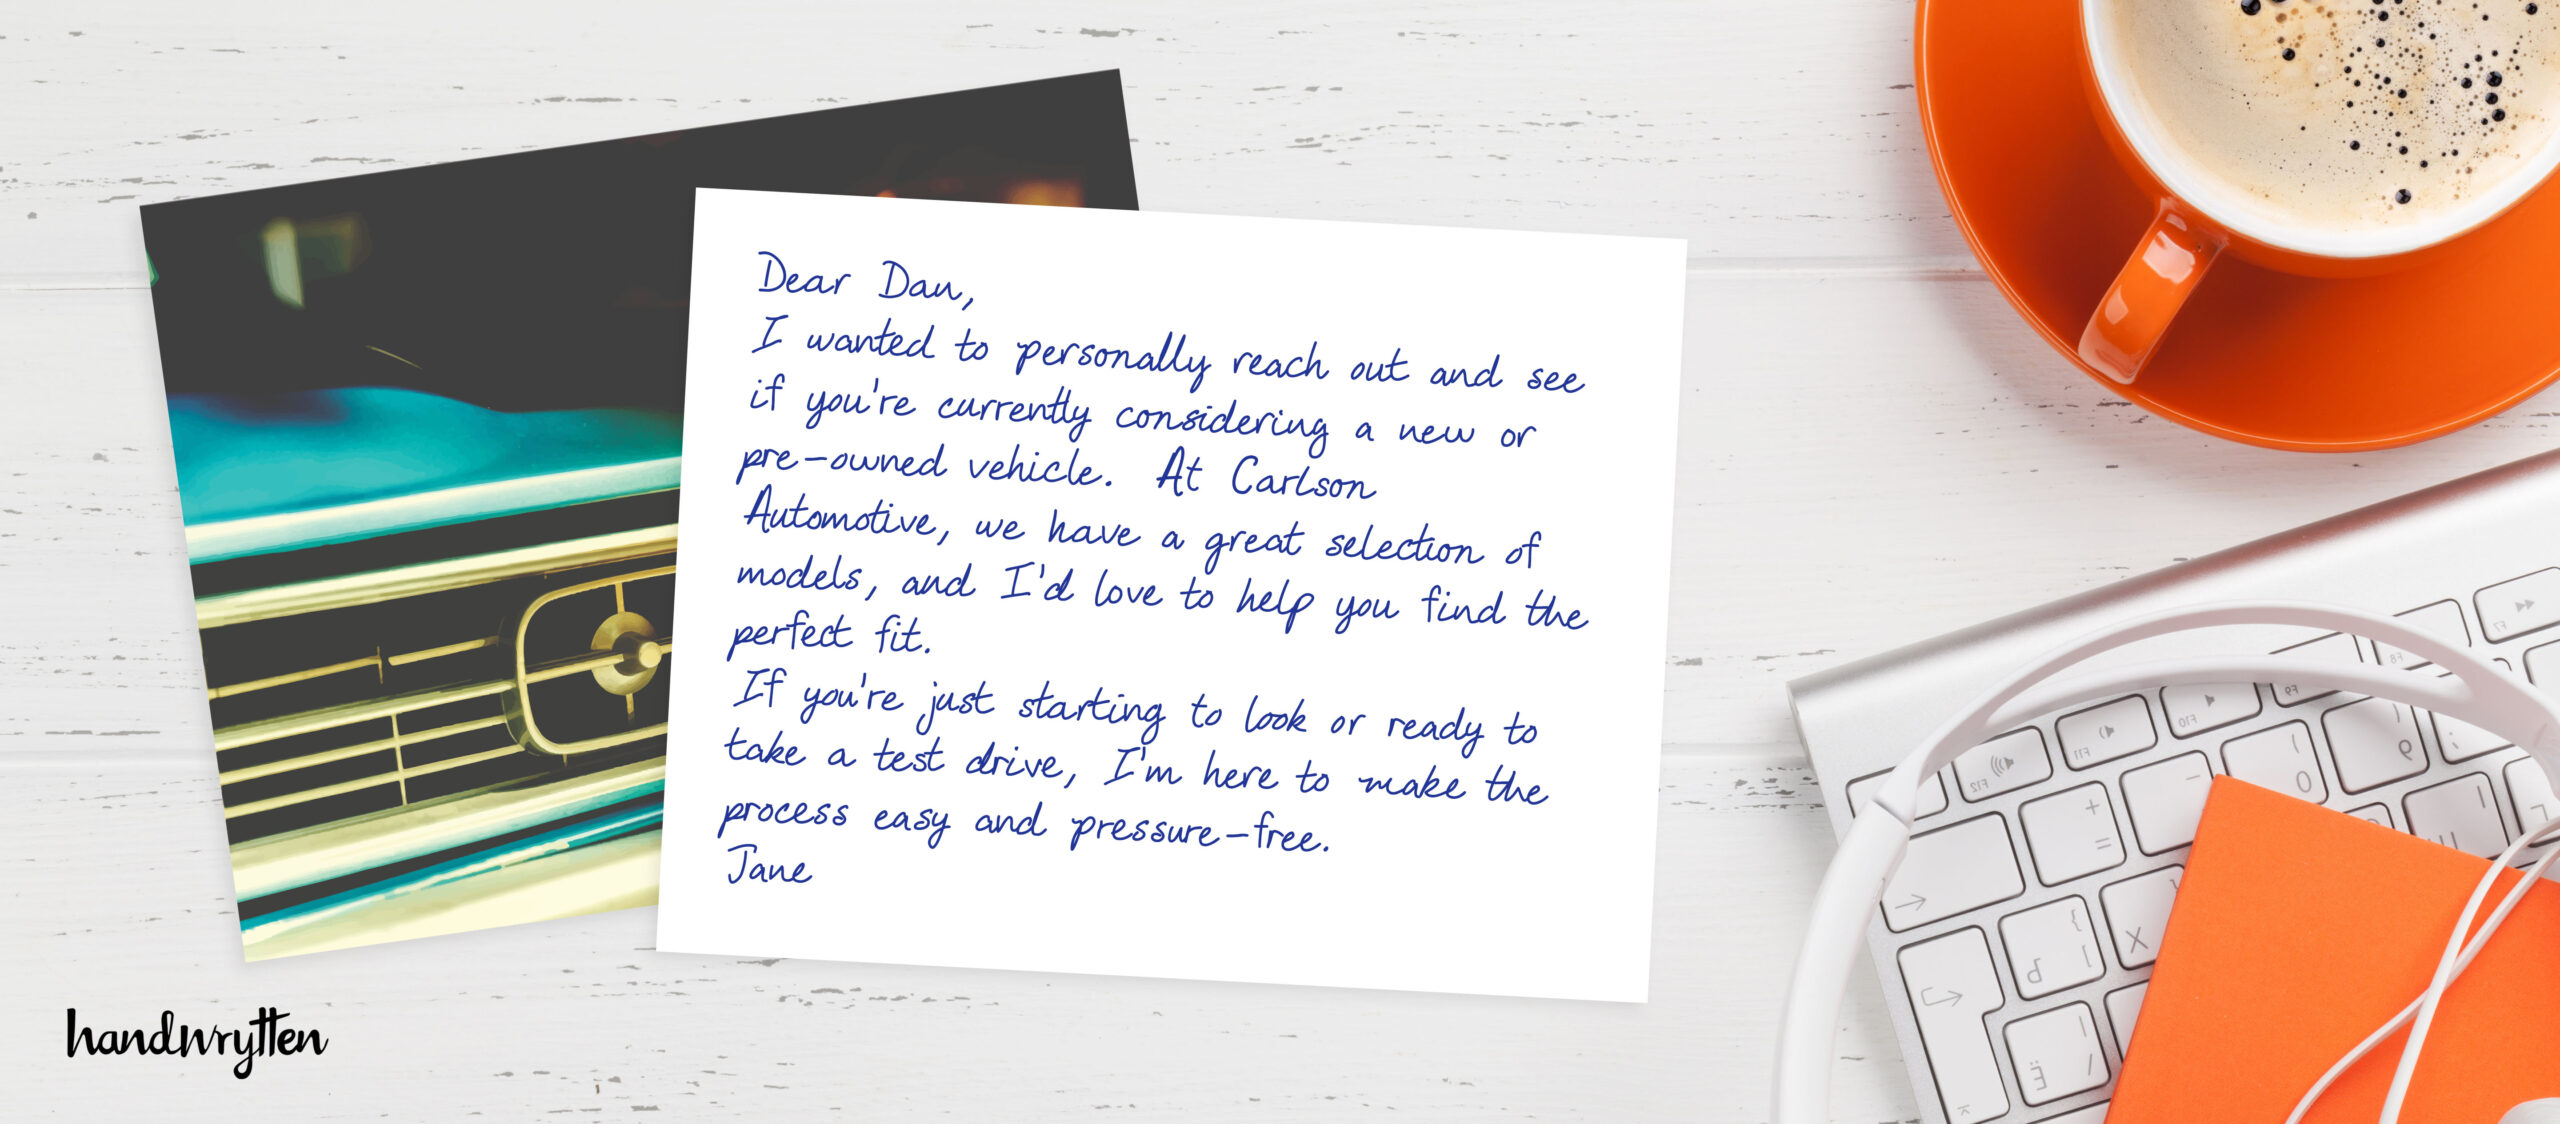 Dear Dan,
I wanted to personally reach out and see
if you're currently considering a new or
pre-owned vehicle. At Carlson
Automotive, we have a great selection of
models, and I'd love to help you find the
perfect fit.
If you're just starting to look or ready to
take a test drive, I'm here to make the
process easy and pressure-free.
Jane
handwrytten
F7
F8
F9
F10
F11
F12